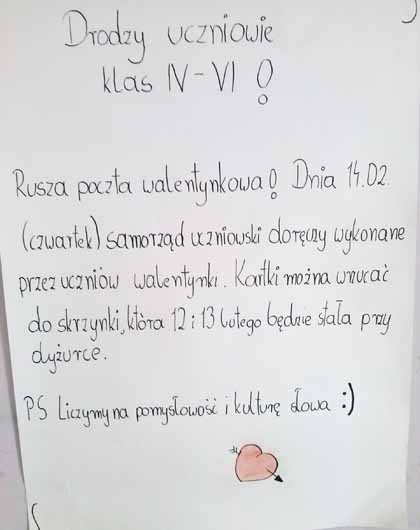 Drodzy uczniowie
klas IV-VI!
Rusza poczta walentynkowa! Dnia 14.02.
(czwartek) samorząd uczniowski doręczy wykonane
przez uczniów walentynki. Kartki można wrzucać
do skrzynki, która 12 i 13 lutego będzie stała przy
dyżurce.
PS Liczymy na pomysłowość i kulturę słowa :)